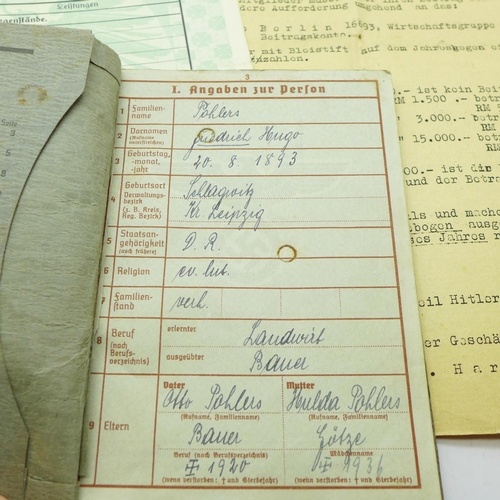 Leistungen
genstände.
Seite
3
5
8
dere Aufforderung umgehend an das:
Berlin 16693, Wirtschaftsgruppe
Beitragskonto.
mit Bleistift auf dem
nzahlen.
- ist kein Bei
RM 1.500 .- betr
3.000.- betr
15.000.- betr
.- ist di
und der Betra
ls und mach
bogen ausg
es Jahres
eil Hitler
er Geschä
. H a r
3
I. Angaben zur Person
1 Familien-
name
Pöhlers
2 Vornamen
(Rufname
unterstreichen)
Friedrich Hugo
3 Geburtstag,
-monat,
-jahr
20. 8. 1893
4 Geburtsort
Verwaltungs-
bezirk
(z. B. Kreis,
Reg. Bezirk)
Kr. Leipzig
5 Staatsan-
gehörigkeit
(auch frühere)
D. R.
6 Religion
ev. lut.
7 Familien-
stand
verh.
8 Beruf
(nach
Berufs-
verzeichnis)
erlernter
Landwirt
ausgeübter
Bauer
9 Eltern
Vater
Otto Pöhlers
(Rufname, Familienname)
Bauer
Beruf (nach Berufsverzeichnis)
1920
(wenn verstorben: † und Sterbejahr)
Mutter
Hulda Pöhlers
(Rufname, Familienname)
Götze
Mädchenname
1936
(wenn verstorben: † und Sterbejahr)